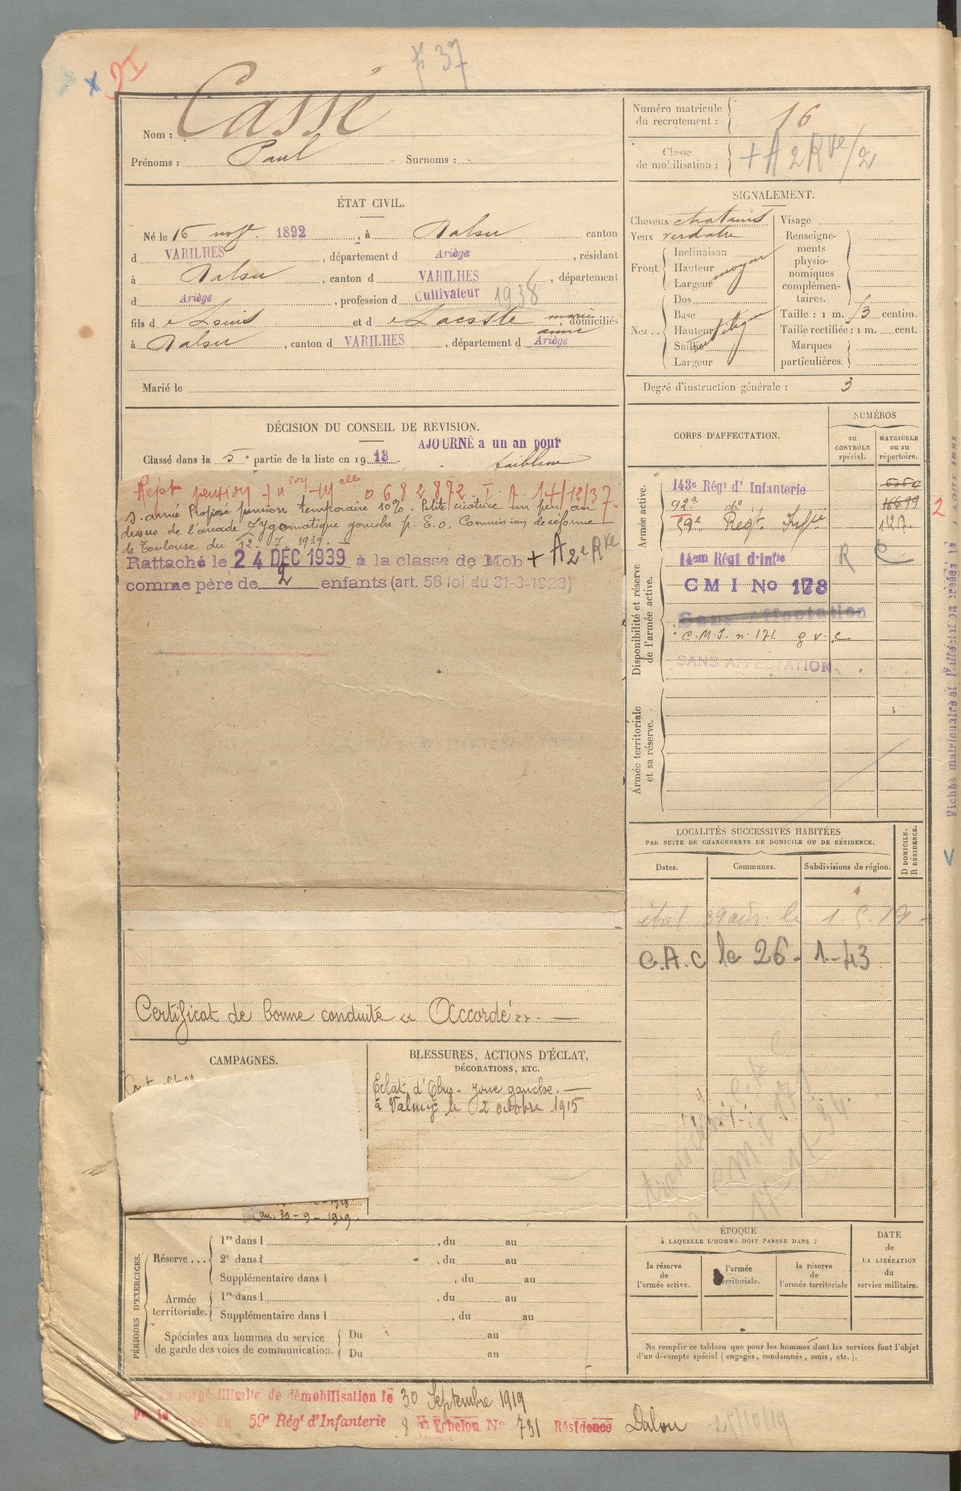 91
37
Nom : Cassé
Prénoms : Paul Surnoms :
ÉTAT CIVIL.
Né le 16 1892 , à Dalou canton
d VARILHES , département d Ariège , résidant
à Dalou , canton d VARILHES , département
d Ariège , profession d Cultivateur 1938
fils d e Louis et d e Lacoste marie anne domiciliés
à Dalou , canton d VARILHES , département d Ariège
Marié le
DÉCISION DU CONSEIL DE REVISION.
AJOURNÉ a un an pour
faiblesse
Classé dans la 5e partie de la liste en 1913.
Rept pension 0682872. I. A. 14/12/37
Proposé pension temporaire 10%. Petite cicatrice un peu au
dessus de l'arcade Zygomatique gauche p. E. O. Commission de réforme
de Toulouse du 1939.
Rattaché le 24 DÉC 1939 à la classe de Mob + A 2e Rve
comme père de 2 enfants (art. 58 loi du 31-3-1928)
Certificat de bonne conduite « Accordé »
CAMPAGNES.
au 30-9-1919.
BLESSURES, ACTIONS D'ÉCLAT,
DÉCORATIONS, ETC.
Eclat d'Obus - joue gauche.
à Valmy le 2 octobre 1915
PÉRIODES D'EXERCICES.
Réserve ...
1re dans l , du au
2e dans l , du au
Supplémentaire dans l , du au
Armée territoriale.
1re dans l , du au
Supplémentaire dans l , du au
Spéciales aux hommes du service
de garde des voies de communication.
Du au
Du au
Numéro matricule
du recrutement : 16
Classe
de mobilisation : + A 2 Rve/2
SIGNALEMENT.
Cheveux chatains
Yeux verdatre
Front
Inclinaison
Hauteur
Largeur
moyen
Nez
Dos
Base
Hauteur
Saillie
Largeur
Visage
Renseigne-
ments
physio-
nomiques
complémen-
taires.
Taille : 1 m. 53 centim.
Taille rectifiée : 1 m. cent.
Marques
particulières.
Degré d'instruction générale : 3
CORPS D'AFFECTATION.
NUMÉROS
AU
CONTRÔLE
spécial.
MATRICULE
OU AU
répertoire.
Armée active.
143e Régt d'Infanterie
92e do
59e Regt. Infie
Disponibilité et réserve
de l'armée active.
14em Régt d'Infie R C
CMI No 178
Sans Affectation
C.M.I. n° 171 g v c
SANS AFFECTATION
Armée territoriale
et sa réserve.
LOCALITÉS SUCCESSIVES HABITÉES
PAR SUITE DE CHANGEMENTS DE DOMICILE OU DE RÉSIDENCE.
Dates. Communes. Subdivisions de région.
D DOMICILE.
R RÉSIDENCE.
C.A.C le 26-1-43
ÉPOQUE
À LAQUELLE L'HOMME DOIT PASSER DANS :
la réserve
de
l'armée active.
l'armée
territoriale.
la réserve
de
l'armée territoriale
DATE
de
LA LIBÉRATION
du
service militaire.
Ne remplir ce tableau que pour les hommes dont les services font l'objet
d'un décompte spécial (engagés, condamnés, omis, etc.).
congé illimité de démobilisation le 30 Septembre 1919
59e Régt d'Infanterie 8 Echelon No 731 Résidence Dalou